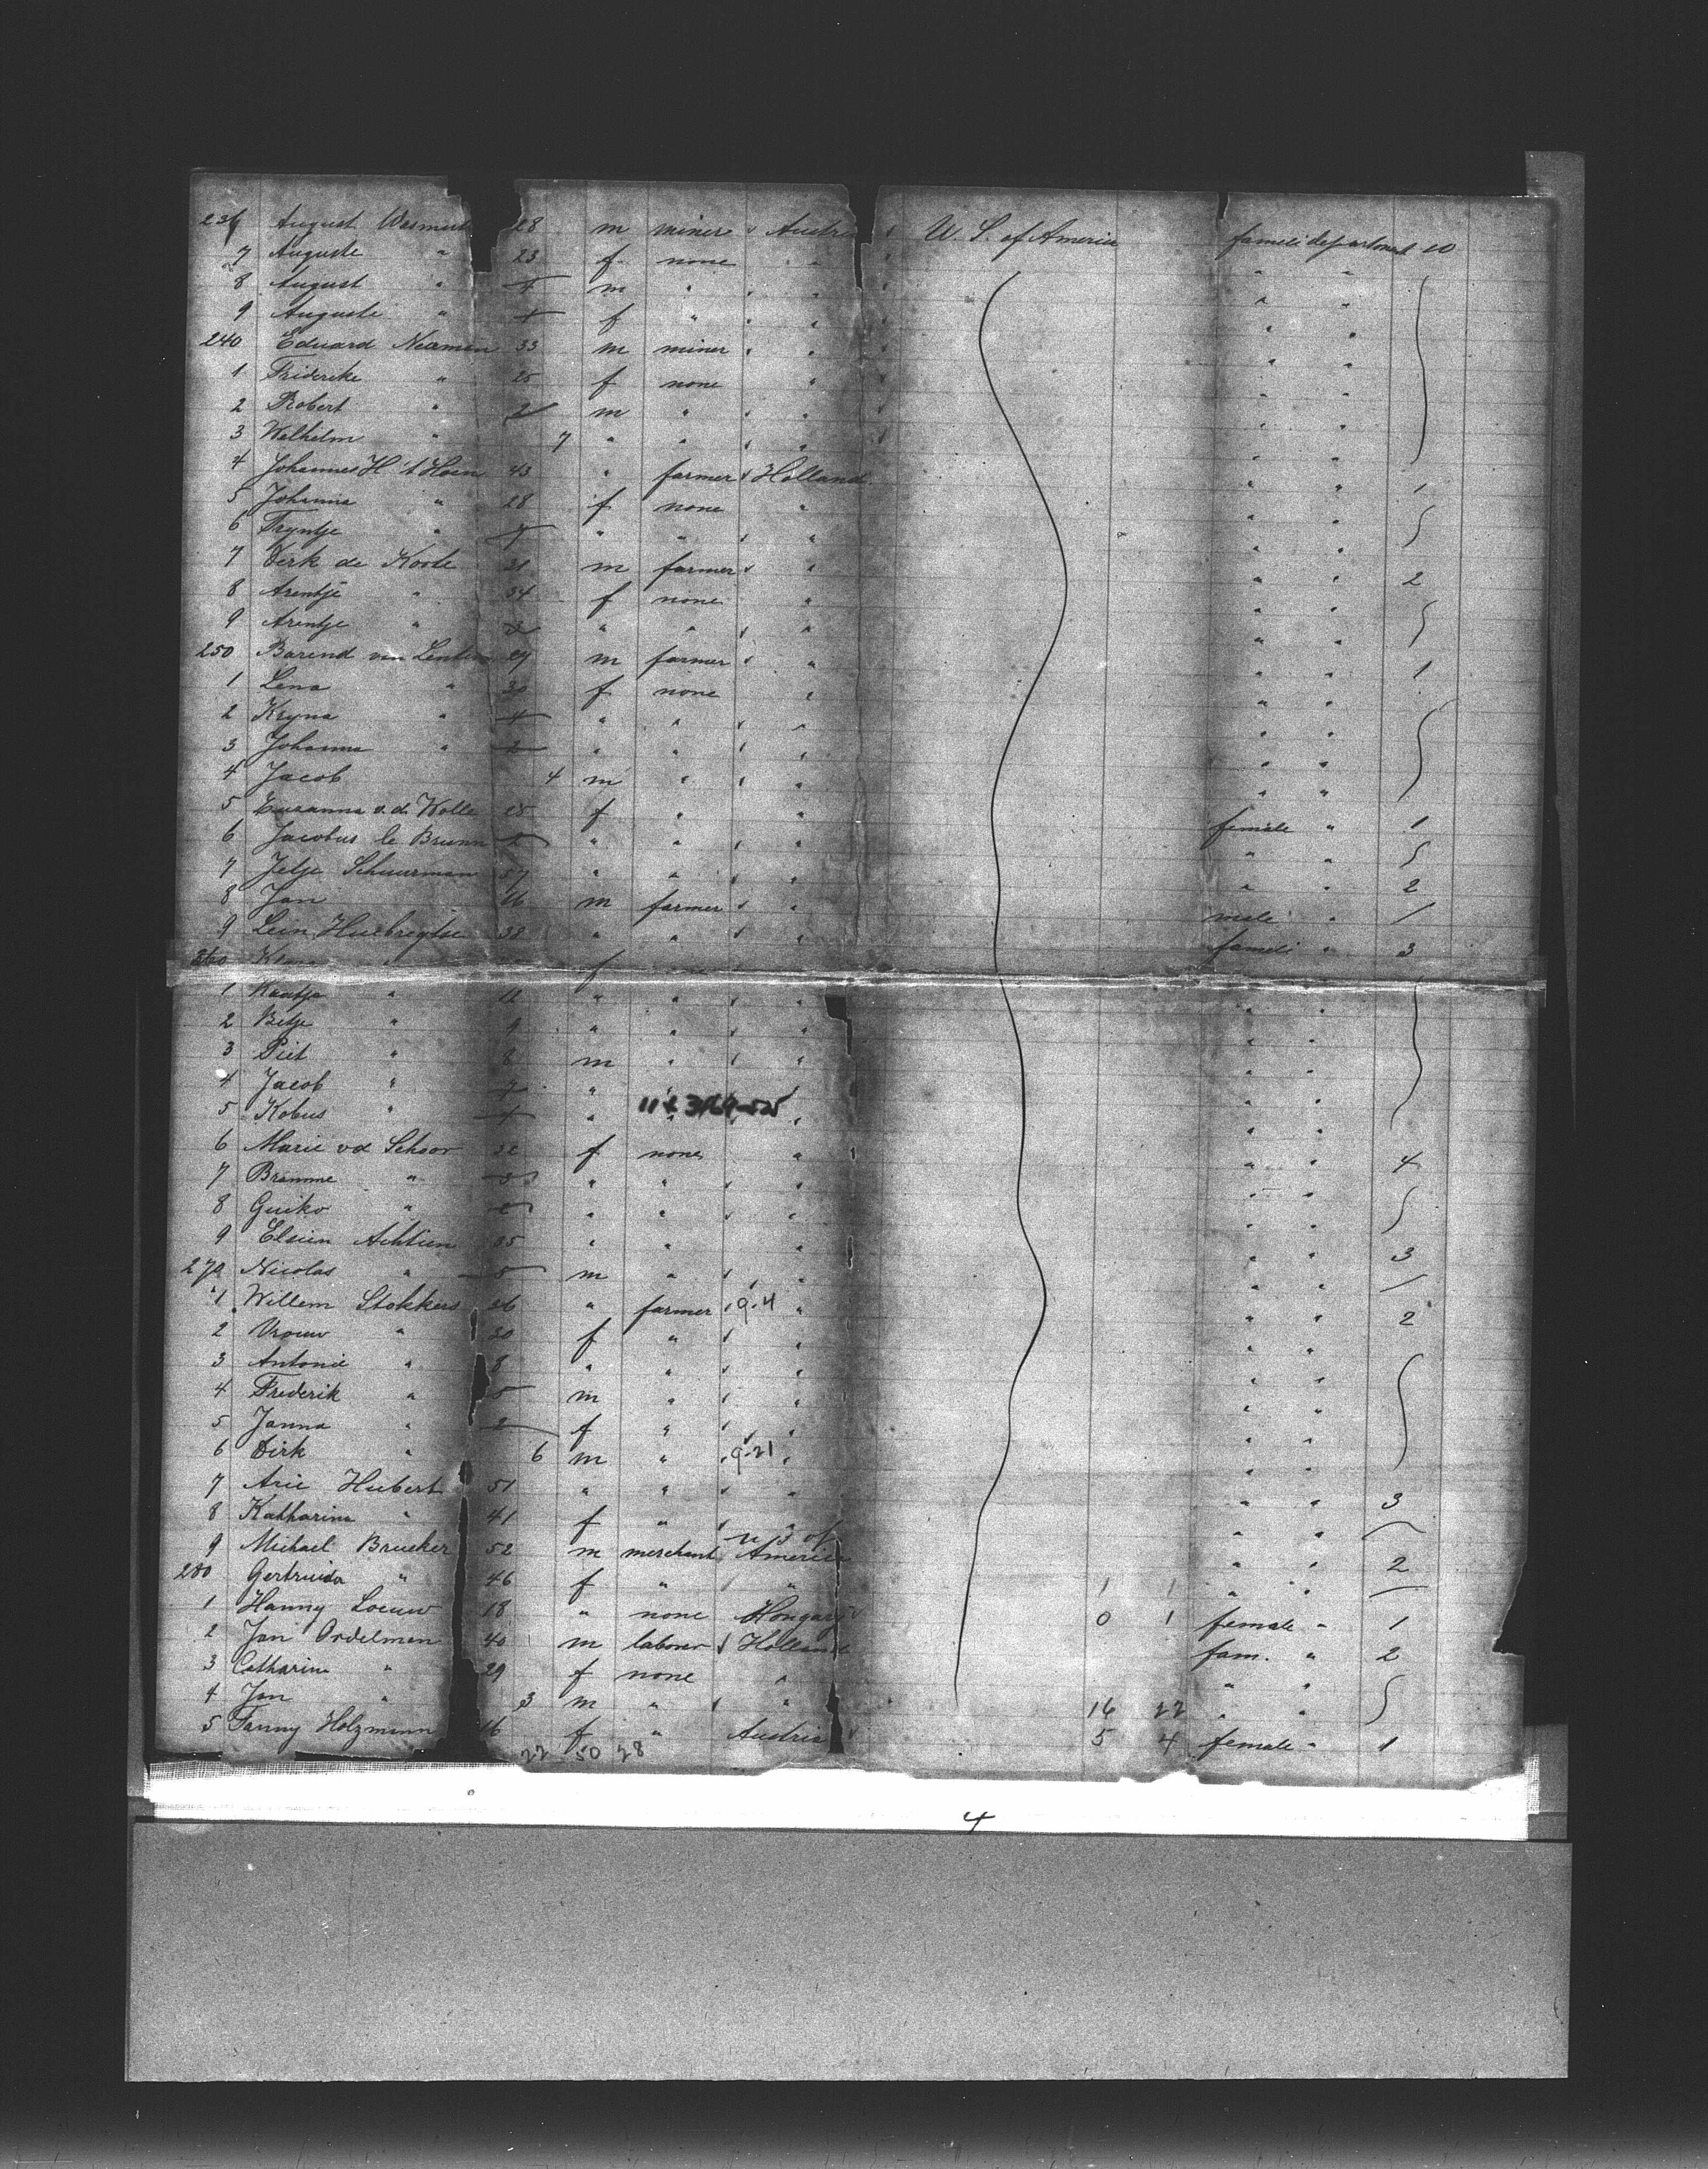 236 August Wasmut 28 m miner Austria U. S. of America famili department 10
7 Auguste " 23 f none " " "
8 August " m " " " "
9 Auguste " f " " " "
240 Eduard Neaman 33 m miner " " "
1 Friderike " 25 f none " " "
2 Robert " 2 m " " " "
3 Welhelm " 7 " " " " "
4 Johannes H 't Hoen 43 " farmer Holland " " 1
5 Johanna " 28 f none " " "
6 Tryntje " " " " " "
7 Dirk de Koole 31 m farmer " " " 2
8 Arentje " 34 f none " " "
9 Arentje " 3 " " " " "
250 Barend van 29 m farmer " " " 1
1 Lena " 30 f none " " "
2 Kryna " 4 " " " " "
3 Johanna " 2 " " " " "
4 Jacob 4 m " " " "
5 Suzanna v.d. Wolle 28 f " " female " 1
6 Jacobus le Brunn " " " " "
7 Jetje Schuurman 57 " " " " " 2
8 Jan 16 m farmer " male "
9 Lein Huibregtse 38 " " " famili " 3
260 " f
1 Kaatje " 12 " " " " "
2 Betje " 9 " " " " "
3 Piet " 8 m " " " "
4 Jacob " 7 " " "
5 Kobus " 4 " " " " "
6 Marie vd Schoor 32 f none " " " 4
7 Bramme " 3 " " " " "
8 Guiko " " " " " "
9 Elsien Achtien 35 " " " " " 3
270 Nicolas " 5 m " " " "
1 Willem Stokkers 36 " farmer 9-4 " " " 2
2 Vrouw " 30 f " " " "
3 Antonie " 8 " " " " "
4 Frederik " 5 m " " " "
5 Janna " 2 f " " " "
6 Dirk " 6 m " 9-21 " " "
7 Arie Hubert 51 " " " " " 3
8 Katharina " 41 f " " " "
9 Michael Brucker 52 m merchant U S of America " " 2
280 Gertruida " 46 f " " 1 1 " "
1 Hanny Loeuw 18 " none Hongary 0 1 female " 1
2 Jan Ordelman 40 m laborer Holland fam. " 2
3 Catharina " 29 f none " " "
4 Jan " 3 m " " 16 22 " "
5 Fanny Holzmann 16 f " Austria 5 4 female " 1
22 50 28
4